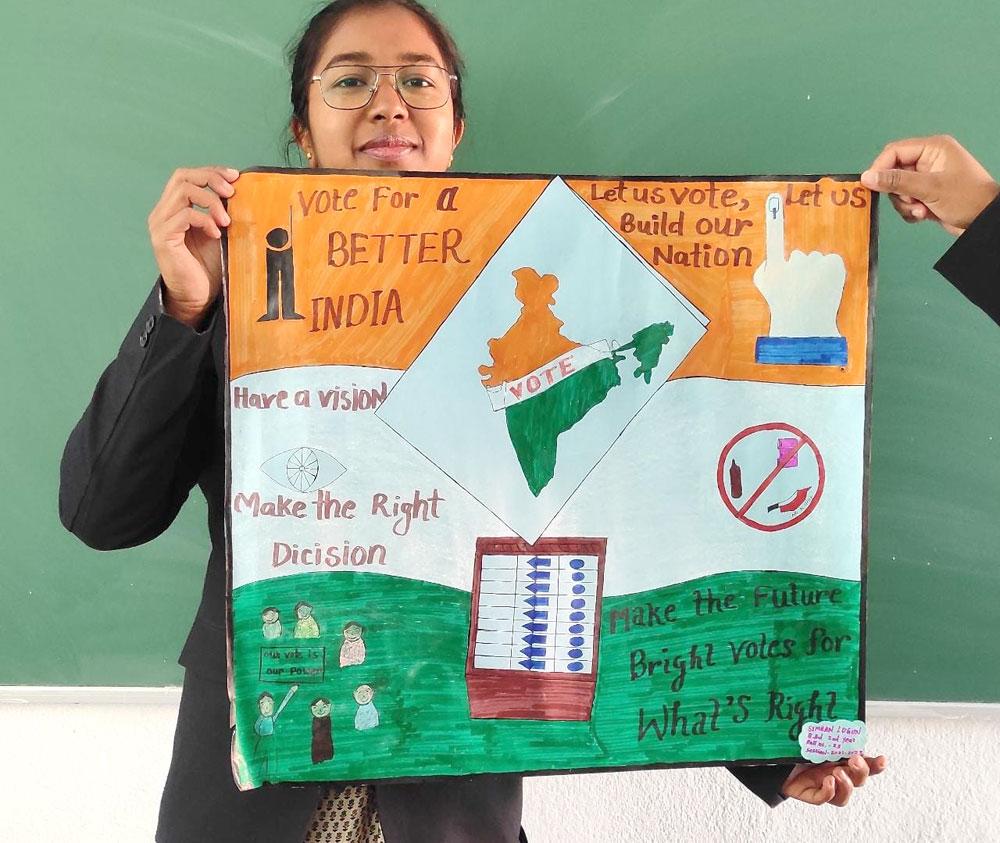 Vote For a
BETTER
INDIA
Let us vote,
Build our
Nation
Let US
VOTE
Have a vision
Make the Right
Dicision
our vote is
our Power
Make the Future
Bright votes for
What's Right
SIMRAN
B.Ed 2nd year
Roll no. - 22
Session-2021-2023